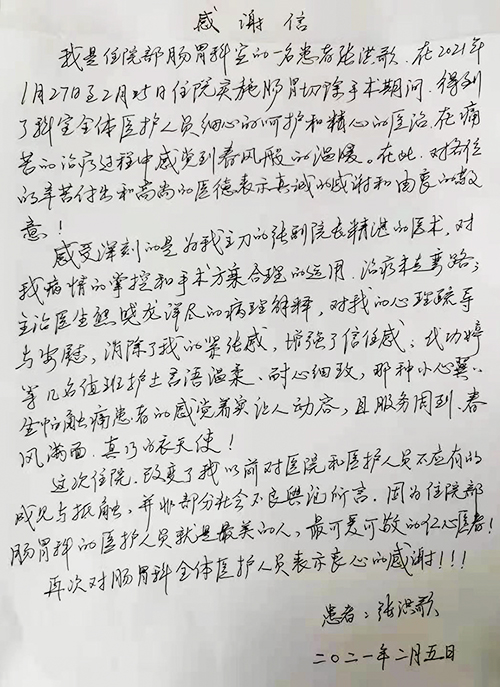 感谢信
我是住院部肠胃科室的一名患者张洪歌，在2021年
1月27日至2月5日住院实施肠胃切除手术期间，得到
了科室全体医护人员细心的呵护和精心的医治，在痛
苦的治疗过程中感觉到春风般的温暖。在此，对各位
的辛苦付出和高尚的医德表示真诚的感谢和由衷的敬
意！
感受深刻的是为我主刀的张副院长精湛的医术，对
我病情的掌控和手术方案合理的运用，治疗未走弯路；
主治医生熊晓龙详尽的病理解释，对我的心理疏导
与安慰，消除了我的紧张感，增强了信任感；代功婷
等几名值班护士言语温柔、耐心细致，那种小心翼々
生怕触痛患者的感觉着实让人动容，且服务周到、春
风满面，真乃白衣天使！
这次住院，改变了我以前对医院和医护人员不应有的
成见与抵触，并非部分社会不良舆论所言。因为住院部
肠胃科的医护人员就是最美的人，最可爱可敬的仁心医者！
再次对肠胃科全体医护人员表示衷心的感谢！！！
患者：张洪歌
二〇二一年二月五日